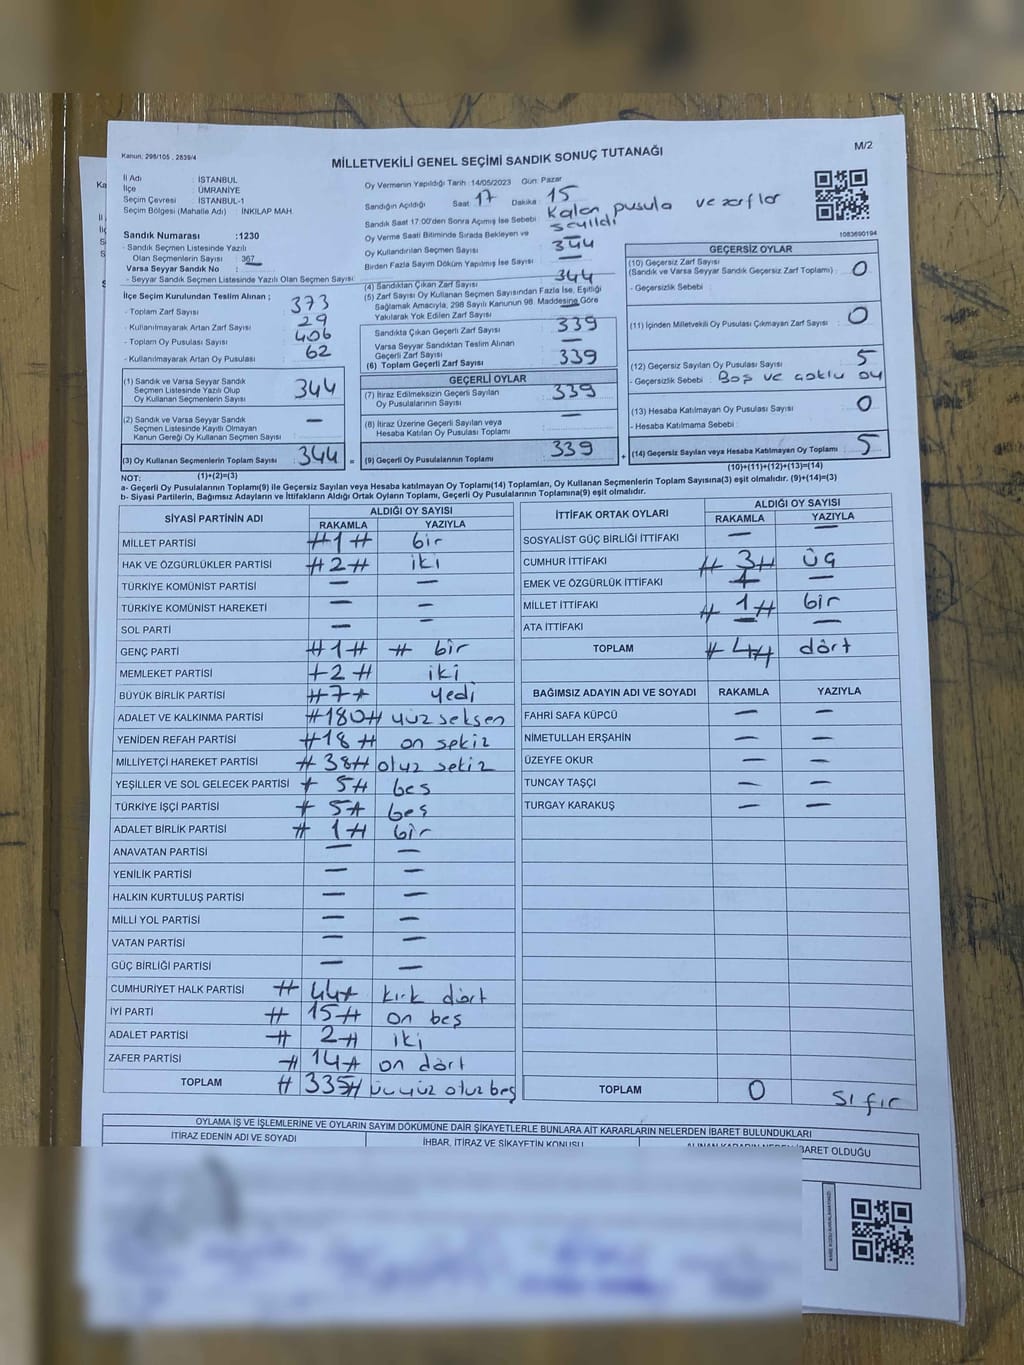 Kanun: 298/105 , 2839/4
MİLLETVEKİLİ GENEL SEÇİMİ SANDIK SONUÇ TUTANAĞI
M/2
İl Adı : İSTANBUL
İlçe : ÜMRANİYE
Seçim Çevresi : İSTANBUL-1
Seçim Bölgesi (Mahalle Adı) : İNKILAP MAH
Sandık Numarası :1230
- Sandık Seçmen Listesinde Yazılı
Olan Seçmenlerin Sayısı : 367
Varsa Seyyar Sandık No :
- Seyyar Sandık Seçmen Listesinde Yazılı Olan Seçmen Sayısı:
İlçe Seçim Kurulundan Teslim Alınan ;
- Toplam Zarf Sayısı : 373
- Kullanılmayarak Artan Zarf Sayısı : 29
- Toplam Oy Pusulası Sayısı : 406
- Kullanılmayarak Artan Oy Pusulası : 62
(1) Sandık ve Varsa Seyyar Sandık
Seçmen Listesinde Yazılı Olup
Oy Kullanan Seçmenlerin Sayısı : 344
(2) Sandık ve Varsa Seyyar Sandık
Seçmen Listesinde Kayıtlı Olmayan
Kanun Gereği Oy Kullanan Seçmen Sayısı : —
(3) Oy Kullanan Seçmenlerin Toplam Sayısı : 344 =
(1)+(2)=(3)
Oy Vermenin Yapıldığı Tarih :14/05/2023 Gün: Pazar
Sandığın Açıldığı Saat 17 Dakika 15
Sandık Saat 17:00'den Sonra Açımış İse Sebebi : Kalan pusula ve zarflar
sayıldı
Oy Verme Saati Bitiminde Sırada Bekleyen ve
Oy Kullandırılan Seçmen Sayısı : 344
Birden Fazla Sayım Döküm Yapılmış İse Sayısı : —
(4) Sandıktan Çıkan Zarf Sayısı : 344
(5) Zarf Sayısı Oy Kullanan Seçmen Sayısından Fazla İse, Eşitliği
Sağlamak Amacıyla, 298 Sayılı Kanunun 98. Maddesine Göre
Yakılarak Yok Edilen Zarf Sayısı : —
Sandıkta Çıkan Geçerli Zarf Sayısı : 339
Varsa Seyyar Sandıktan Teslim Alınan
Geçerli Zarf Sayısı : —
(6) Toplam Geçerli Zarf Sayısı : 339
GEÇERLİ OYLAR
(7) İtiraz Edilmeksizin Geçerli Sayılan
Oy Pusulalarının Sayısı : 339
(8) İtiraz Üzerine Geçerli Sayılan veya
Hesaba Katılan Oy Pusulası Toplamı : —
(9) Geçerli Oy Pusulalarının Toplamı : 339 +
1083690194
GEÇERSİZ OYLAR
(10) Geçersiz Zarf Sayısı
(Sandık ve Varsa Seyyar Sandık Geçersiz Zarf Toplamı) : 0
- Geçersizlik Sebebi :
(11) İçinden Milletvekili Oy Pusulası Çıkmayan Zarf Sayısı : 0
(12) Geçersiz Sayılan Oy Pusulası Sayısı : 5
- Geçersizlik Sebebi : Boş ve çoklu oy
(13) Hesaba Katılmayan Oy Pusulası Sayısı : 0
- Hesaba Katılmama Sebebi :
(14) Geçersiz Sayılan veya Hesaba Katılmayan Oy Toplamı : 5
(10)+(11)+(12)+(13)=(14)
NOT:
a- Geçerli Oy Pusulalarının Toplamı(9) ile Geçersiz Sayılan veya Hesaba Katılmayan Oy Toplamı(14) Toplamları, Oy Kullanan Seçmenlerin Toplam Sayısına(3) eşit olmalıdır. (9)+(14)=(3)
b- Siyasi Partilerin, Bağımsız Adayların ve İttifakların Aldığı Ortak Oyların Toplamı, Geçerli Oy Pusulalarının Toplamına(9) eşit olmalıdır.
SİYASİ PARTİNİN ADI ALDIĞI OY SAYISI
RAKAMLA YAZIYLA
MİLLET PARTİSİ #1# bir
HAK VE ÖZGÜRLÜKLER PARTİSİ #2# iki
TÜRKİYE KOMÜNİST PARTİSİ — —
TÜRKİYE KOMÜNİST HAREKETİ — —
SOL PARTİ — —
GENÇ PARTİ #1# # bir
MEMLEKET PARTİSİ #2# iki
BÜYÜK BİRLİK PARTİSİ #7# yedi
ADALET VE KALKINMA PARTİSİ #180# yüz seksen
YENİDEN REFAH PARTİSİ #18# on sekiz
MİLLİYETÇİ HAREKET PARTİSİ #38# otuz sekiz
YEŞİLLER VE SOL GELECEK PARTİSİ # 5# beş
TÜRKİYE İŞÇİ PARTİSİ # 5# beş
ADALET BİRLİK PARTİSİ # 1# bir
ANAVATAN PARTİSİ — —
YENİLİK PARTİSİ — —
HALKIN KURTULUŞ PARTİSİ — —
MİLLİ YOL PARTİSİ — —
VATAN PARTİSİ — —
GÜÇ BİRLİĞİ PARTİSİ — —
CUMHURİYET HALK PARTİSİ # 44# kırk dört
İYİ PARTİ # 15# on beş
ADALET PARTİSİ # 2# iki
ZAFER PARTİSİ # 14# on dört
TOPLAM # 335# üçyüz otuz beş
İTTİFAK ORTAK OYLARI ALDIĞI OY SAYISI
RAKAMLA YAZIYLA
SOSYALİST GÜÇ BİRLİĞİ İTTİFAKI — —
CUMHUR İTTİFAKI # 3# üç
EMEK VE ÖZGÜRLÜK İTTİFAKI — —
MİLLET İTTİFAKI # 1# bir
ATA İTTİFAKI — —
TOPLAM # 4# dört
BAĞIMSIZ ADAYIN ADI VE SOYADI RAKAMLA YAZIYLA
FAHRİ SAFA KÜPCÜ — —
NİMETULLAH ERŞAHİN — —
ÜZEYFE OKUR — —
TUNCAY TAŞÇI — —
TURGAY KARAKUŞ — —
TOPLAM 0 sıfır
OYLAMA İŞ VE İŞLEMLERİNE VE OYLARIN SAYIM DÖKÜMÜNE DAİR ŞİKAYETLERLE BUNLARA AİT KARARLARIN NELERDEN İBARET BULUNDUKLARI
İTİRAZ EDENİN ADI VE SOYADI İHBAR, İTİRAZ VE ŞİKAYETİN KONUSU ALINAN KARARIN NEDEN İBARET OLDUĞU